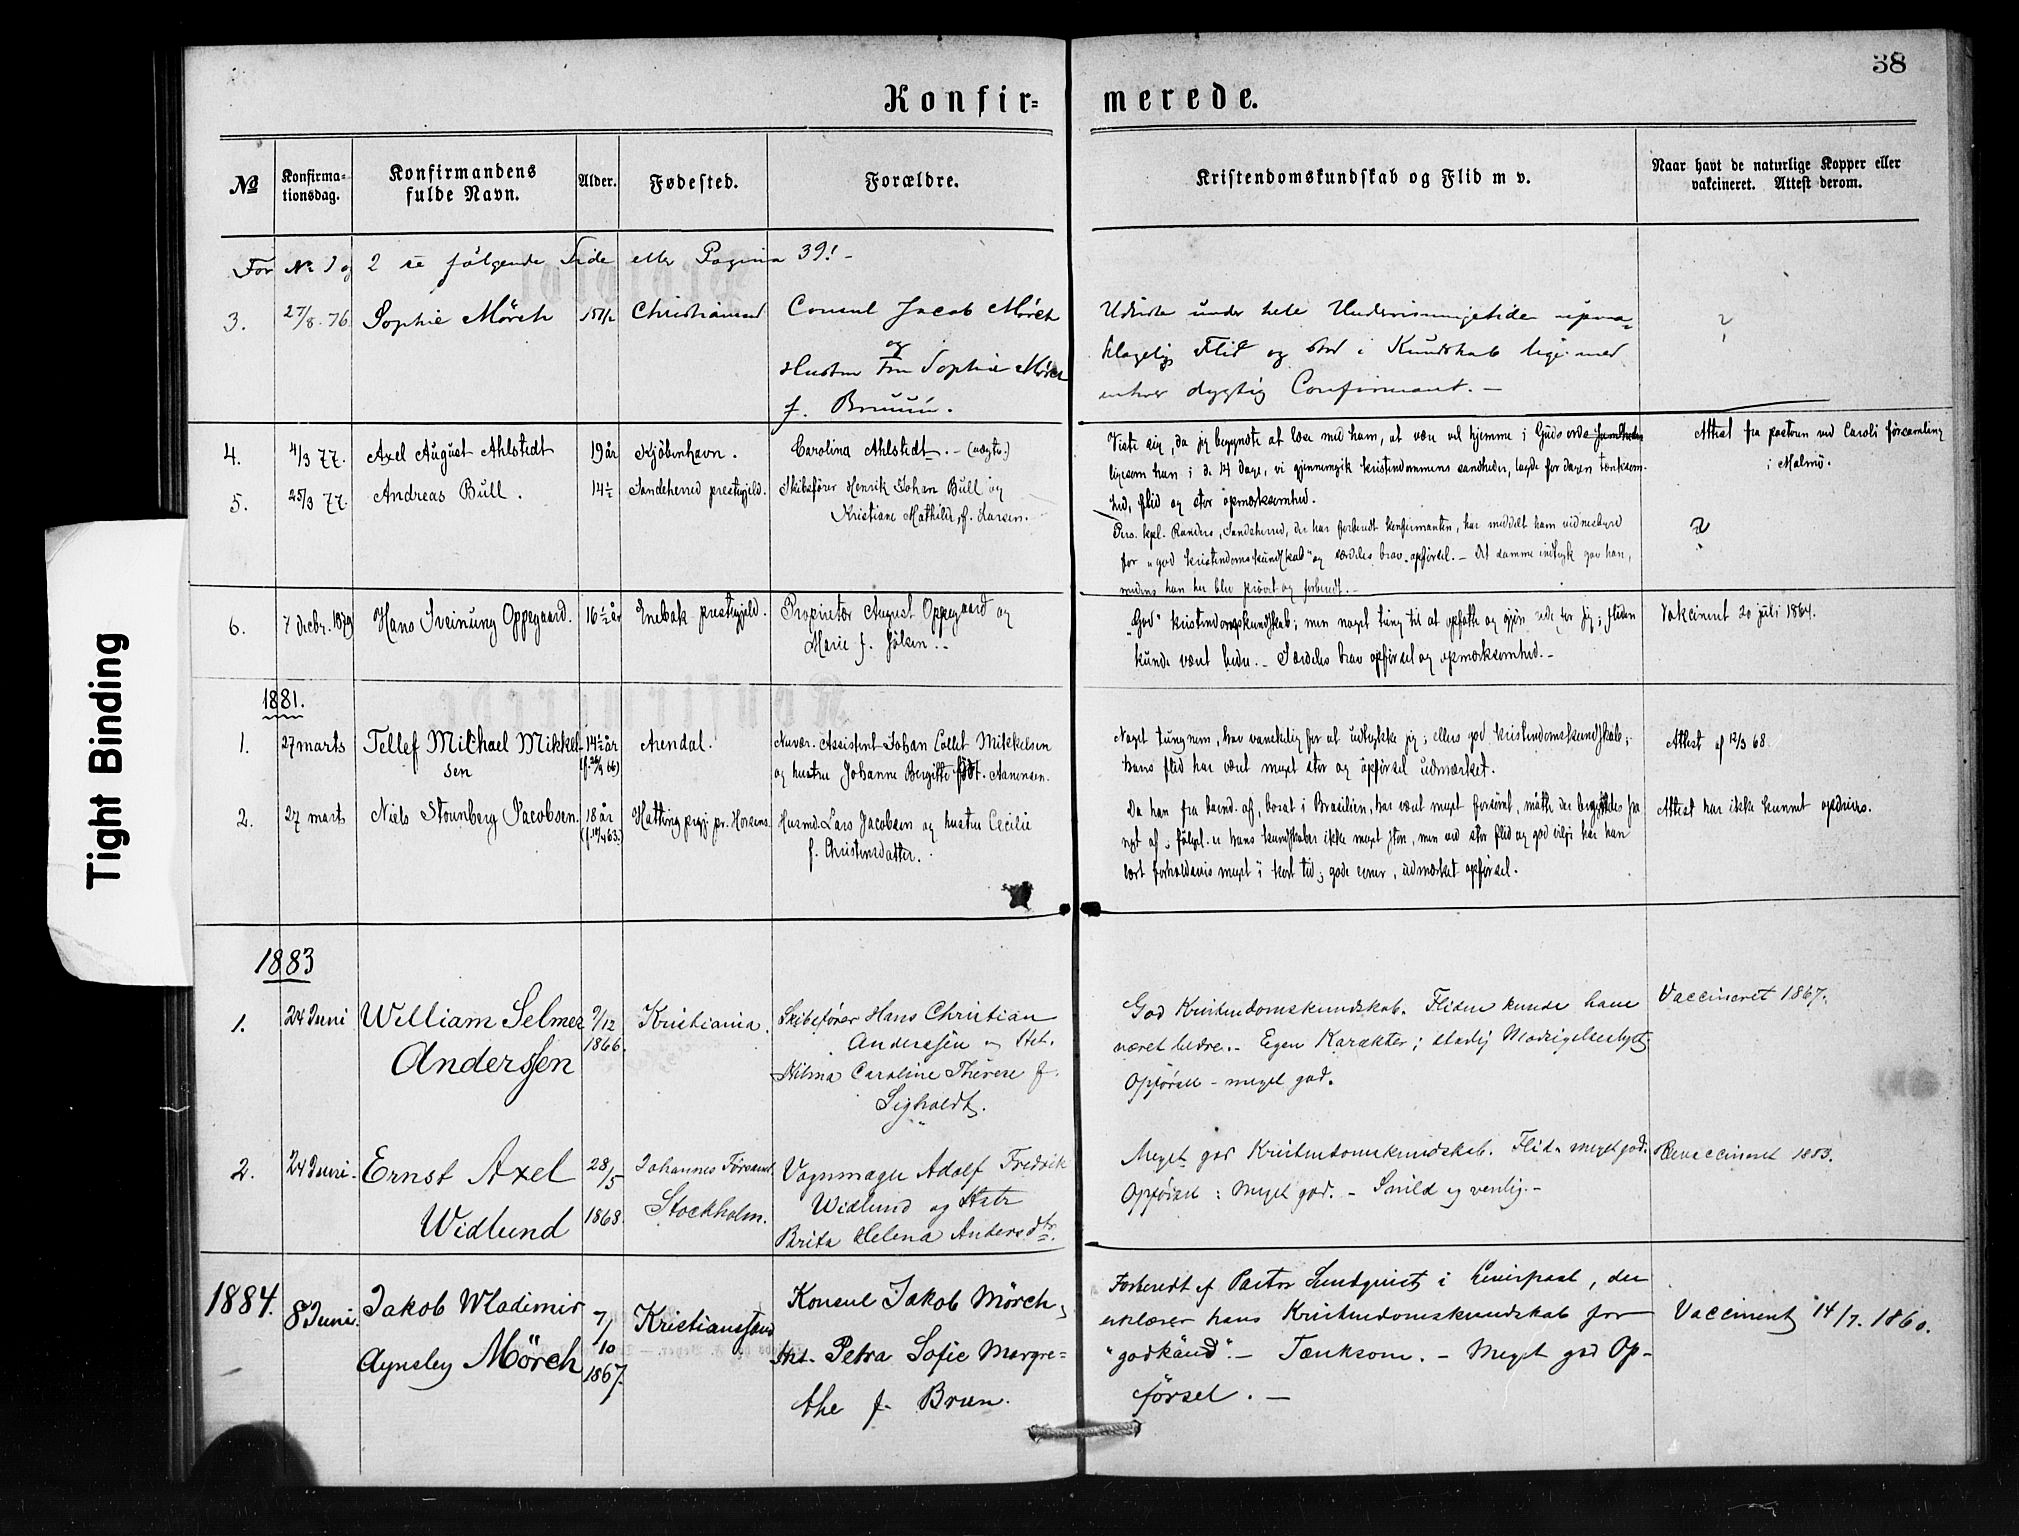 38
Konfir=
merede.
№
Konfirma-
tionsdag.
Konfirmandens
fulde Navn.
Alder.
Fødested.
Forældre.
Kristendomskundskab og Flid m v.
Naar havt de naturlige Kopper eller
vakcineret. Attest derom.
For No 1 og 2 se følgende Side eller Pagina 39! -
3. 27/8. 76. Sophie Mörch 15 1/2 Christiansand Consul Jacob Mörch
og
Hustru Fru Sophie Mörch
f. Bruun.
Udviste under hele Underviisningstiden upaa=
klagelig Flid og stod i Kundskab lige med
enhver dygtig Confirmant. -
?
4. 4/3 77. Axel August Ahlstedt 19 år Kjöbenhavn. Carolina Ahlstedt. - (uægte.)
Viste sig, da jeg begyndte at læse med ham, at være vel hjemme i Guds ord
ligesom han i de 14 dage, vi gjennemgik kristendommens sandheder, lagde for dagen tænksom-
hed, flid og stor opmærksomhed.
Attest fra pastoren ved Caroli församling
i Malmö.
5. 25/3 77. Andreas Bull. 14 1/2 Sandeherred prestegjeld. Skibsfører Henrik Johan Bull og
Kristiane Mathilde, f. Larsen.
Pers. kpl. Randers, Sandeherred, der har forberedt konfirmanten, har meddelt ham vidnesbyrd
for "god kristendomskundskab" og særdeles brav opførsel. - Det samme indtryk gav han,
medens han her blev prøvet og forberedt. -
?
6. 7 decbr. 1879 Hans Sveinung Oppegaard. 16 1/2 år Enebak prestegjeld. Proprietær August Oppegaard og
Marie f. Jölsen. -
"God" kristendomskundskab; men noget tung til at opfatte og gjøre rede for sig; fliden
kunde været bedre. - Særdeles brav opførsel og opmærksomhed. -
Vakcineret 20 juli 1864.
1881.
1. 27 marts Tellef Michael Mikkel-
sen
14 1/2 år
(f. 26/9 66)
Arendal. Nuvær. Assistent Johan Collet Mikkelsen
og hustru Johanne Bergitte født. Aanensen.
Noget tungnem, har vanskelig for at udtrykke sig; ellers god kristendomskundskab;
hans flid har været meget stor og opførsel udmærket.
Attest af 12/3 68.
2. 27 marts Niels Stounberg Jacobsen. 18 år
Hatting prgj. pr. Horsens. Husmd. Lars Jacobsen og hustru Cecilie
f. Christensdatter.
Da han fra barnd. af, bosat i Brasilien, har været meget forsømt, måtte der begyndes fra
nyt af; følgel. er hans kundskaber ikke meget stor, men ved stor flid og god vilje har han
lært forholdsvis meget i kort tid; gode evner, udmærket opførsel.
Attest har ikke kunnet opdrives.
1883
1. 24 Juni William Selmer
Anderssen
9/12
1866.
Kristiania. Skibsfører Hans Christian
Anderssen og Hst.
Hilma Caroline Therese f.
Sigholdt.
God Kristendomskundskab. Fliden kunde have
været bedre. - Egen Karakter; stadig Modsigelseslyst.
Opførsel - meget god.
Vaccineret 1867.
2. 24 Juni. Ernst Axel
Widlund
28/5
1868.
Johannes Församl.
Stockholm.
Vognmager Adolf Fredrik
Widlund og Hstr
Brita Helena Andersdtr.
Meget god Kristendomskundskab. Flid - meget god.
Opførsel: meget god. - Snild og venlig. -
Revaccineret 1883.
1884. 8 Juni. Jakob Wladimir
Aynsley Mörch
7/10
1867.
Kristianssand Konsul Jakob Mörch,
Hst. Petra Sofie Margre=
the f. Brun.
Forberedt af Pastor Sundqvist i Liverpool, der
erklærer hans Kristendomskundskab for
"godkänd". - Tænksom. - Meget god Op-
førsel. -
Vaccineret 14/7. 1860.
Tight Binding